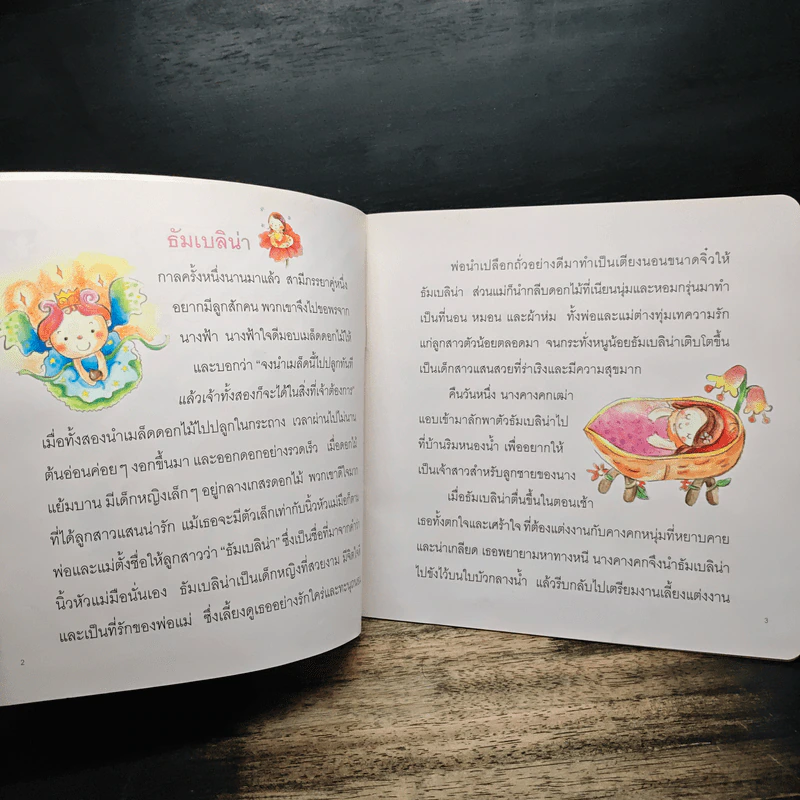 ธัมเบลิน่า
กาลครั้งหนึ่งนานมาแล้ว สามีภรรยาคู่หนึ่ง
อยากมีลูกสักคน พวกเขาจึงไปขอพรจาก
นางฟ้า นางฟ้าใจดีมอบเมล็ดดอกไม้ให้
และบอกว่า "จงนำเมล็ดนี้ไปปลูกทันที
แล้วเจ้าทั้งสองก็จะได้ในสิ่งที่เจ้าต้องการ"
เมื่อทั้งสองนำเมล็ดดอกไม้ไปปลูกในกระถาง เวลาผ่านไปไม่นาน
ต้นอ่อนค่อยๆ งอกขึ้นมา และออกดอกอย่างรวดเร็ว เมื่อดอกไม้
แย้มบาน มีเด็กหญิงเล็กๆ อยู่กลางเกสรดอกไม้ พวกเขาดีใจมาก
ที่ได้ลูกสาวแสนน่ารัก แม้เธอจะมีตัวเล็กเท่ากับนิ้วหัวแม่มือก็ตาม
พ่อและแม่ตั้งชื่อให้ลูกสาวว่า "ธัมเบลิน่า" ซึ่งเป็นชื่อที่มาจากคำว่า
นิ้วหัวแม่มือนั่นเอง ธัมเบลิน่าเป็นเด็กหญิงที่สวยงาม มีจิตใจดี
และเป็นที่รักของพ่อแม่ ซึ่งเลี้ยงดูเธออย่างรักใคร่และทะนุถนอม
2
พ่อนำเปลือกถั่วอย่างดีมาทำเป็นเตียงนอนขนาดจิ๋วให้
ธัมเบลิน่า ส่วนแม่ก็นำกลีบดอกไม้ที่เนียนนุ่มและหอมกรุ่นมาทำ
เป็นที่นอน หมอน และผ้าห่ม ทั้งพ่อและแม่ต่างทุ่มเทความรัก
แก่ลูกสาวตัวน้อยตลอดมา จนกระทั่งหนูน้อยธัมเบลิน่าเติบโตขึ้น
เป็นเด็กสาวแสนสวยที่ร่าเริงและมีความสุขมาก
คืนวันหนึ่ง นางคางคกเฒ่า
แอบเข้ามาลักพาตัวธัมเบลิน่าไป
ที่บ้านริมหนองน้ำ เพื่ออยากให้
เป็นเจ้าสาวสำหรับลูกชายของนาง
เมื่อธัมเบลิน่าตื่นขึ้นในตอนเช้า
เธอทั้งตกใจและเศร้าใจ ที่ต้องแต่งงานกับคางคกหนุ่มที่หยาบคาย
และน่าเกลียด เธอพยายามหาทางหนี นางคางคกจึงนำธัมเบลิน่า
ไปขังไว้บนใบบัวกลางน้ำ แล้วรีบกลับไปเตรียมงานเลี้ยงแต่งงาน
3